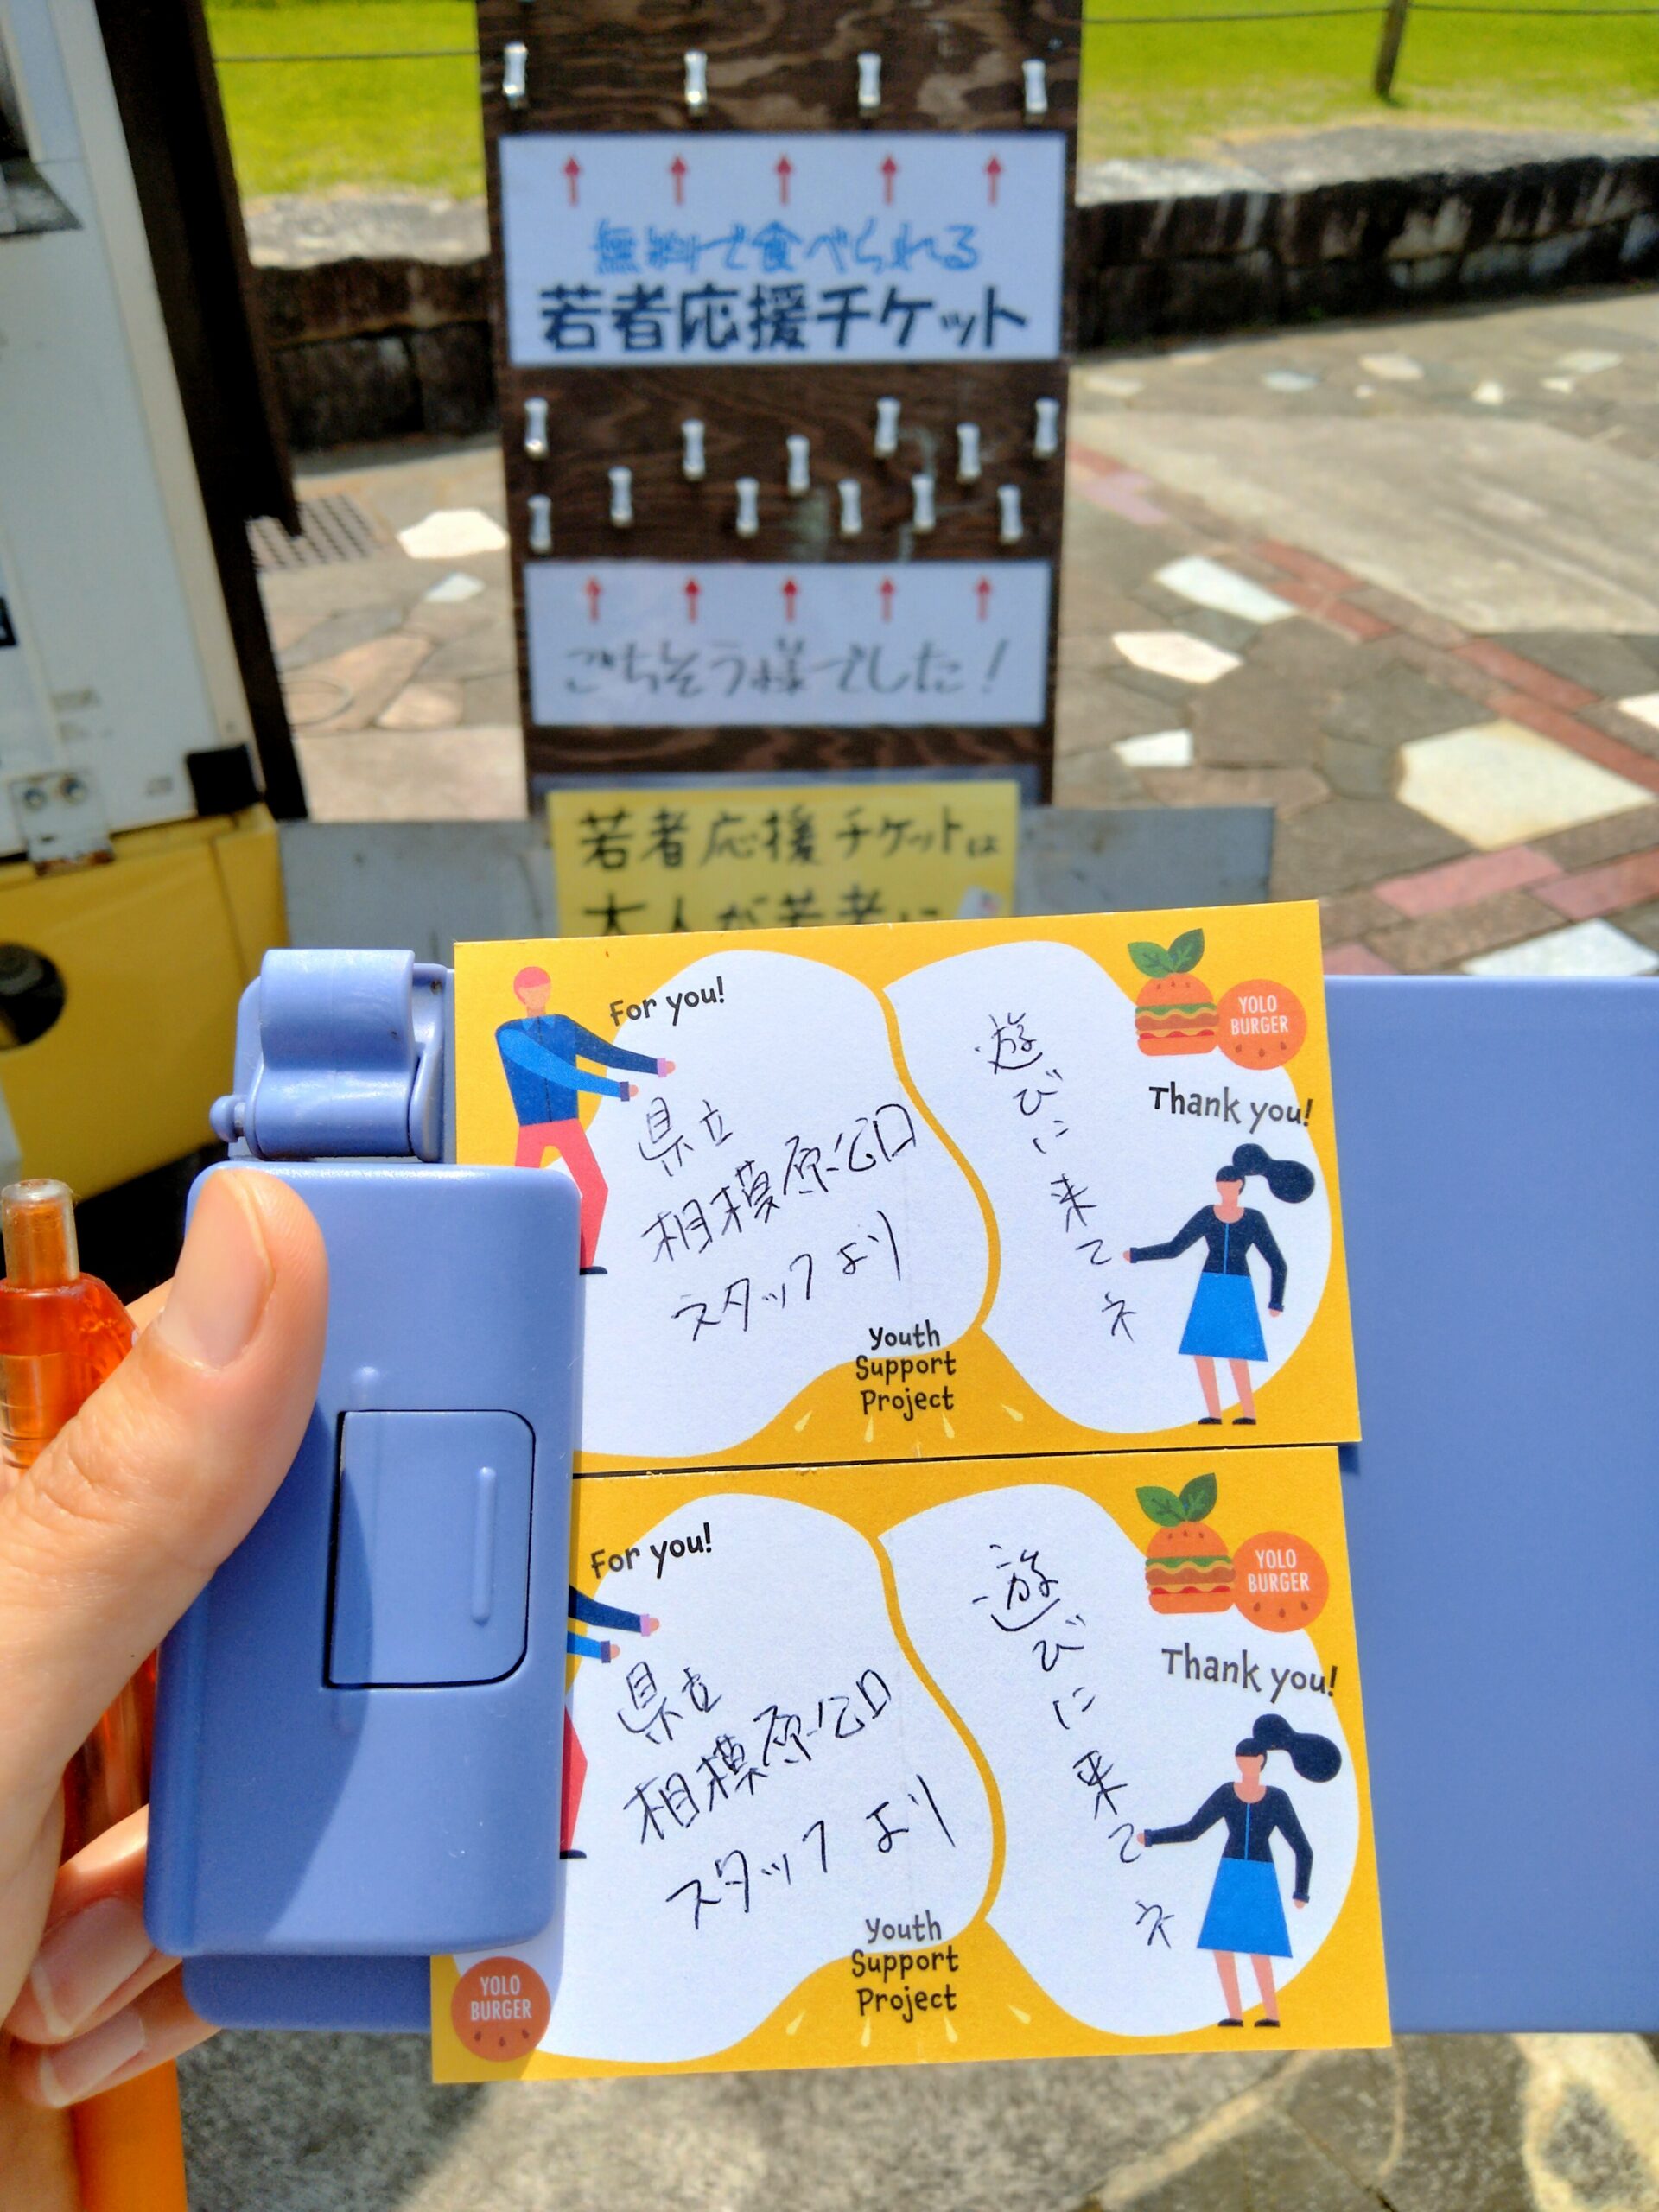 無料で食べられる
若者応援チケット
ごちそう様でした!
若者応援チケットは
大人が若者に
For you!
県立
相模原公口
スタッフより
遊びに来てネ
YOLO
BURGER
Thank you!
Youth
Support
Project
For you!
県立
相模原公口
スタッフより
遊びに来てネ
YOLO
BURGER
Thank you!
Youth
Support
Project
YOLO
BURGER